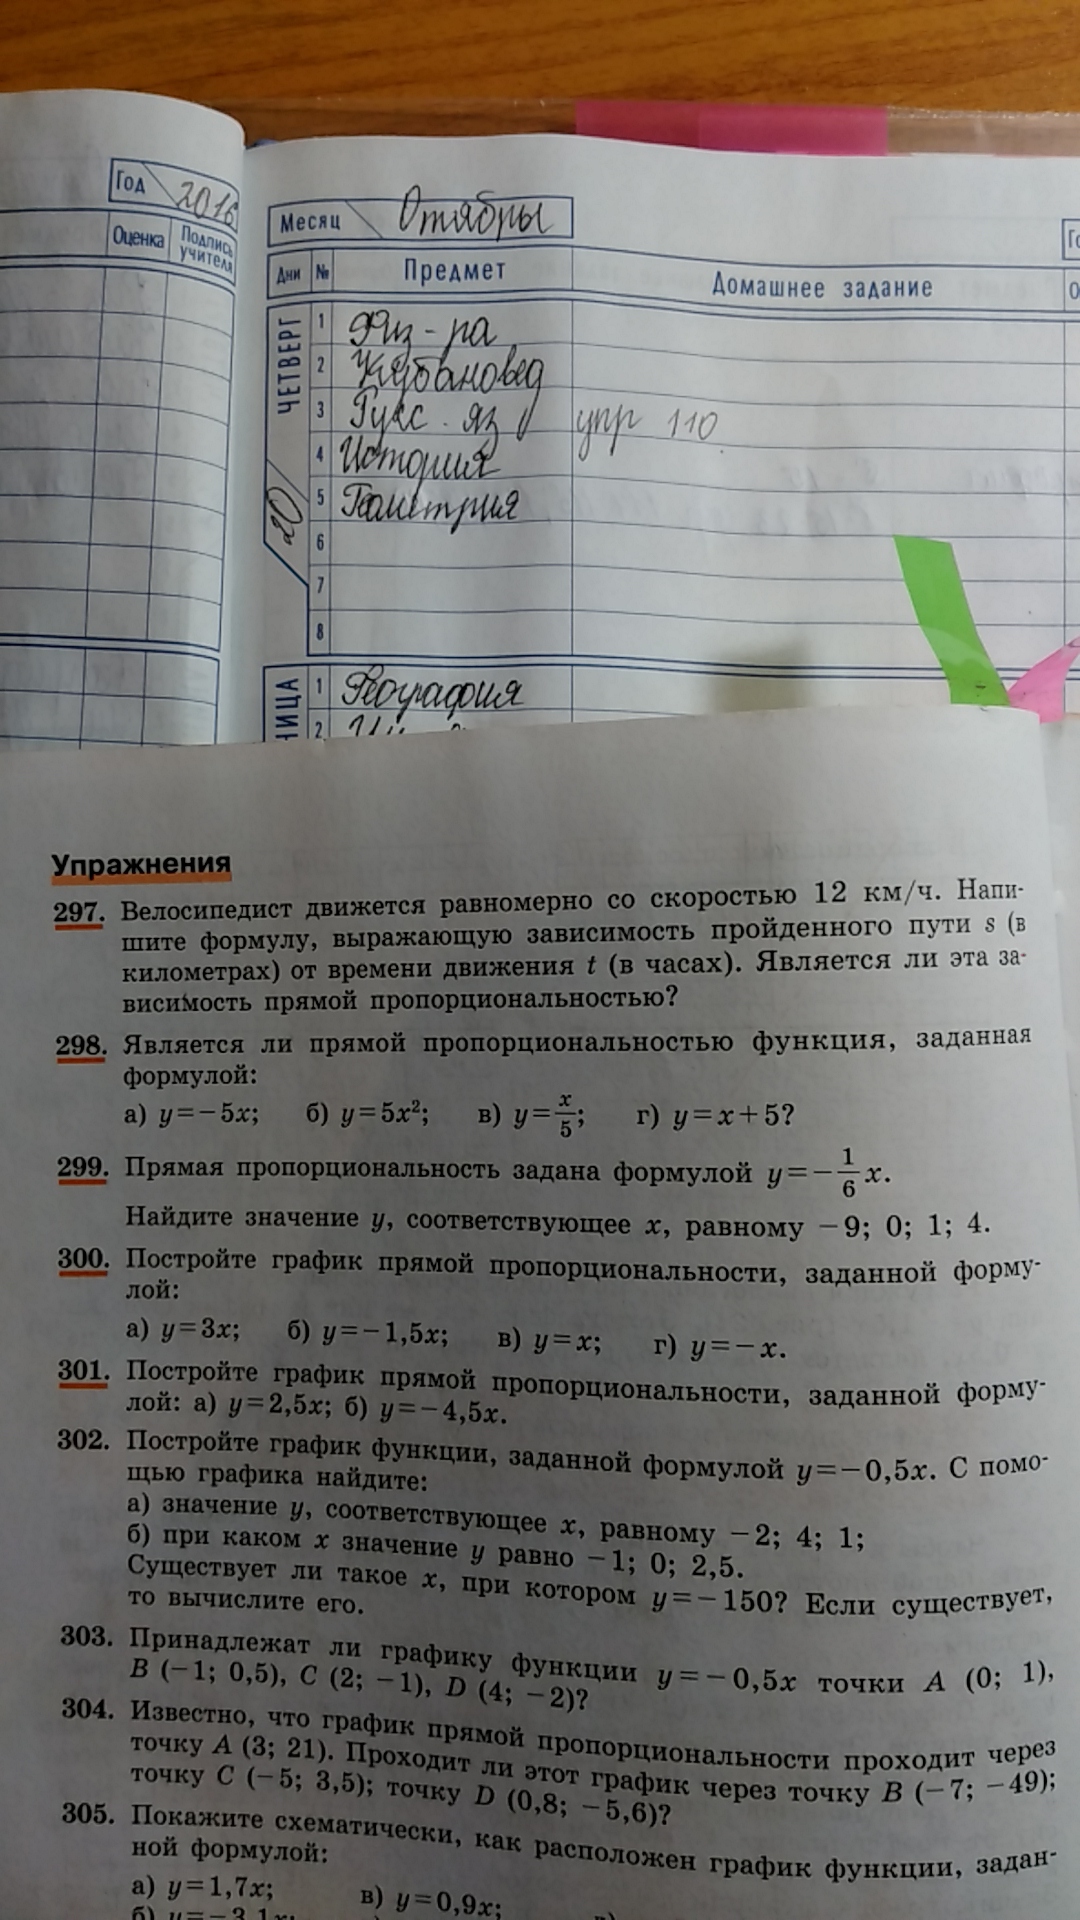 Год 2016
Оценка Подпись учителя
Месяц Отябры
Дни № Предмет Домашнее задание
ЧЕТВЕРГ 20
1 Физ-ра
2 Кубановед
3 Русс. яз упр 110
4 История
5 Геометрия
6
7
8
НИЦА
1 География
2
Упражнения
297. Велосипедист движется равномерно со скоростью 12 км/ч. Напи-
шите формулу, выражающую зависимость пройденного пути s (в
километрах) от времени движения t (в часах). Является ли эта за-
висимость прямой пропорциональностью?
298. Является ли прямой пропорциональностью функция, заданная
формулой:
а) y=−5x; б) y=5x²; в) y=x/5; г) y=x+5?
299. Прямая пропорциональность задана формулой y=−1/6 x.
Найдите значение y, соответствующее x, равному −9; 0; 1; 4.
300. Постройте график прямой пропорциональности, заданной форму-
лой:
а) y=3x; б) y=−1,5x; в) y=x; г) y=−x.
301. Постройте график прямой пропорциональности, заданной форму-
лой: а) y=2,5x; б) y=−4,5x.
302. Постройте график функции, заданной формулой y=−0,5x. С помо-
щью графика найдите:
а) значение y, соответствующее x, равному −2; 4; 1;
б) при каком x значение y равно −1; 0; 2,5.
Существует ли такое x, при котором y=−150? Если существует,
то вычислите его.
303. Принадлежат ли графику функции y=−0,5x точки A (0; 1),
B (−1; 0,5), C (2; −1), D (4; −2)?
304. Известно, что график прямой пропорциональности проходит через
точку A (3; 21). Проходит ли этот график через точку B (−7; −49);
точку C (−5; 3,5); точку D (0,8; −5,6)?
305. Покажите схематически, как расположен график функции, задан-
ной формулой:
а) y=1,7x; в) y=0,9x;
б) y=−3,1x;